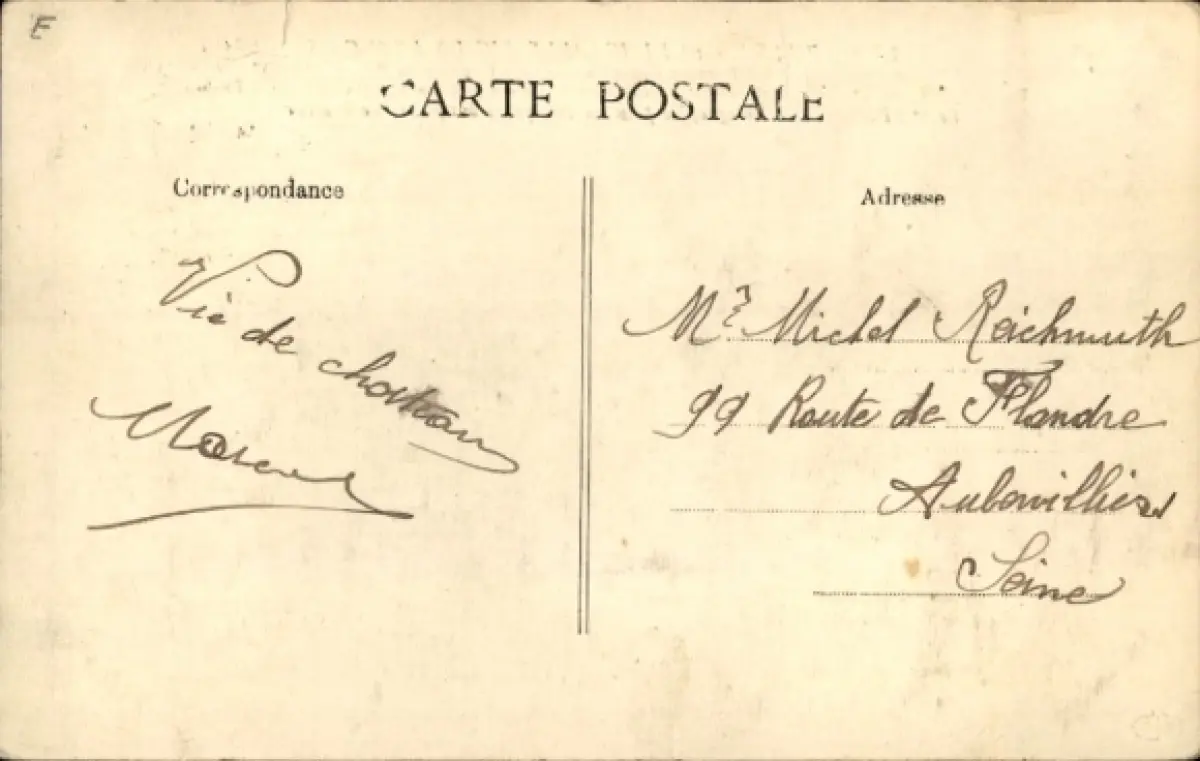 E
CARTE POSTALE
Correspondance
Vie de chateau
Marcel
Adresse
Mr Michel Reichmuth
99 Route de Flandre
Aubervilliers
Seine